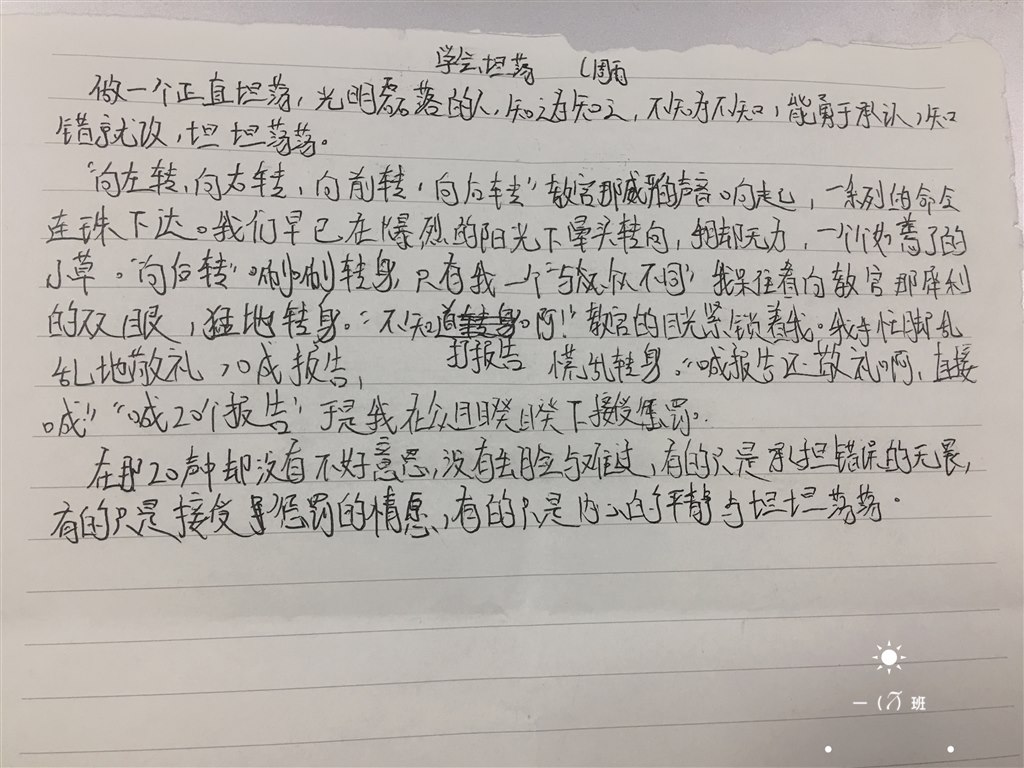 学会坦荡 周雨
做一个正直坦荡，光明磊落的人，知之为知之，不知为不知，能勇于承认，知
错就改，坦坦荡荡。
“向左转，向右转，向前转，向后转”教官那威严的声音响起，一系列的命令
连珠下达。我们早已在爆烈的阳光下晕头转向，翱却无力，一个个如蔫了的
小草。“向后转”唰唰转身，只有我一个“与众不同”我呆住看向教官那犀利
的双眼，猛地转身。“不知道打报告啊！”教官的目光紧锁着我。我手忙脚乱
乱地敬礼，喊报告，慌乱转身。“喊报告还敬礼啊，直接
喊！”“喊20个报告”于是我在众目睽睽下接受惩罚。
在那20声中却没有不好意思，没有丢脸与难过，有的只是承担错误的无畏，
有的只是接受惩罚的情愿，有的只是内心的平静与坦坦荡荡。
一 班